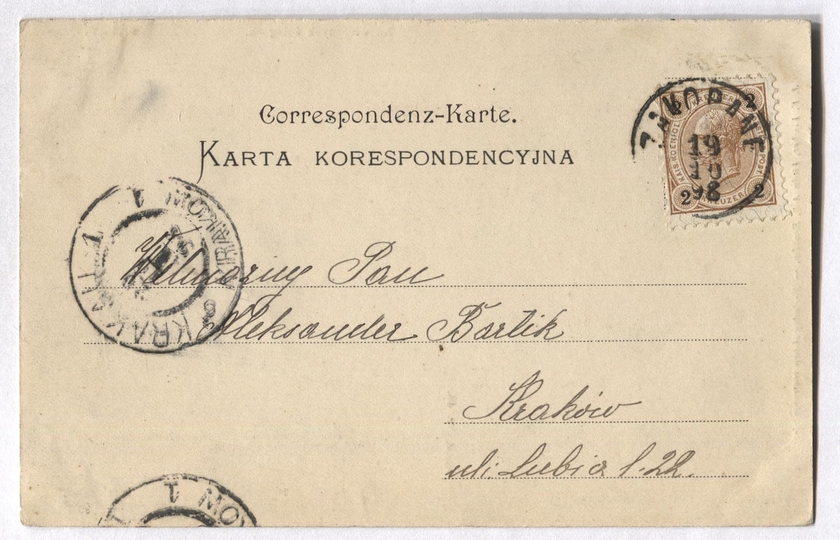 Correspondenz-Karte.
KARTA KORESPONDENCYJNA
ZAKOPANE
19
10
98
2 2
2 KREUZER 2
KRAKAU 1
KRAKOW 1
Wielmożny Pan
Aleksander Bartik
Kraków
ul: Lubicz l. 22.
1 MOK